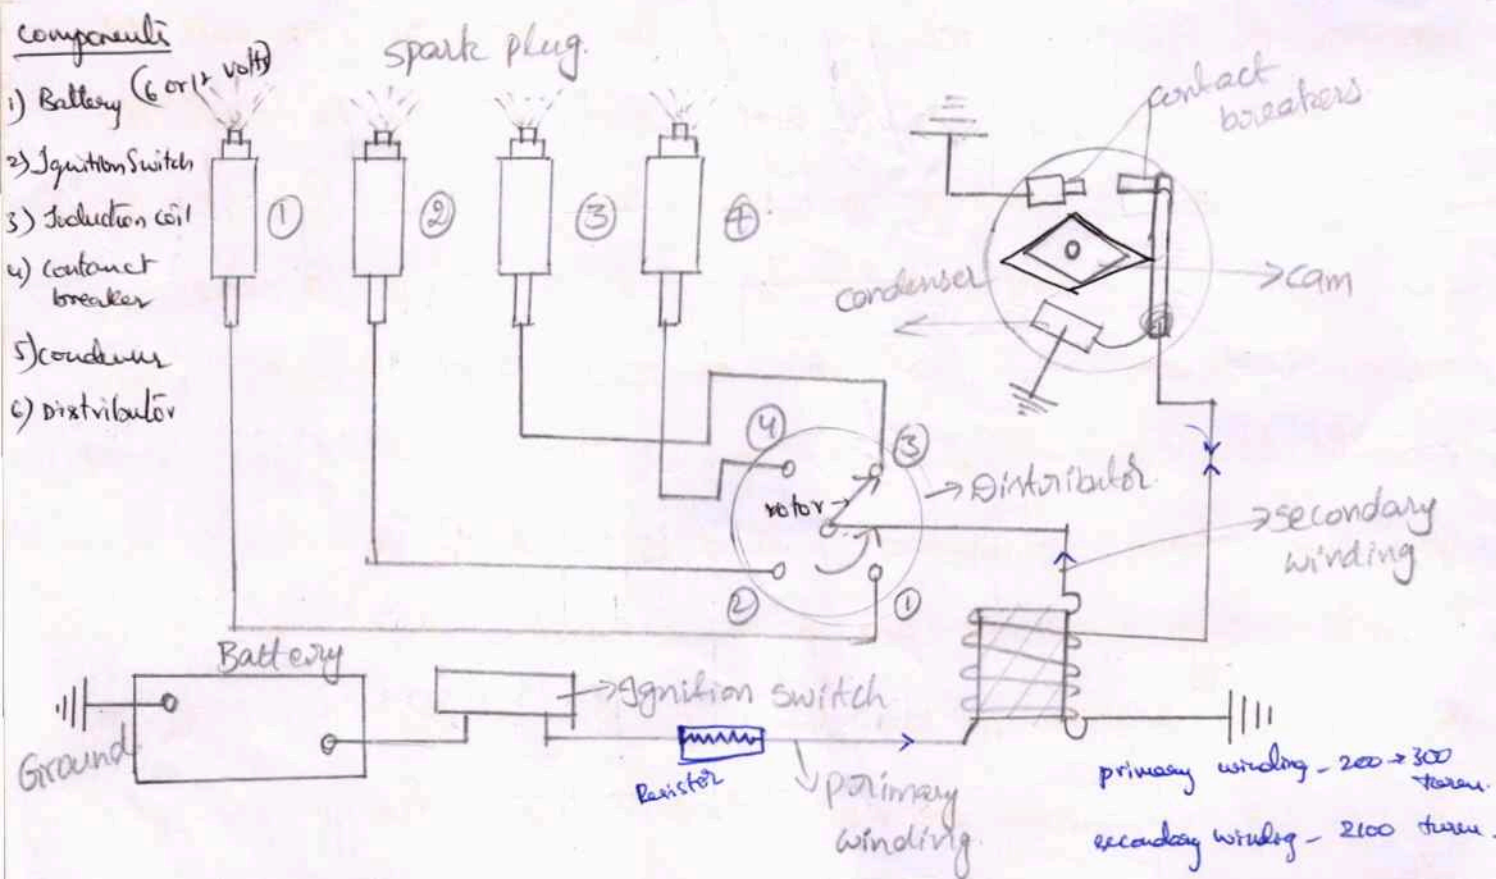 components
1) Battery (6 or 12 volts)
2) Ignition Switch
3) Induction coil
4) Contanct
breaker
5) condenser
6) Distributor
spark plug.
1
2
3
4
contact
breakers
condenser
cam
4
3
rotor
Distributor
2
1
secondary
winding
Battery
Ground
Ignition switch
Resistor
primary
winding
primary winding - 200 → 300
turns.
secondary winding - 2100 turns.